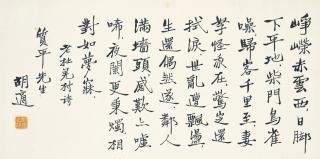 崢嶸赤雲西日脚
下平地柴門鳥雀
噪歸客千里至妻
孥怪我在驚定還
拭淚世亂遭飄盪
生還偶然遂鄰人
滿墻頭感歎亦噓
唏夜闌更秉燭相
對如夢寐
老杜羌村詩
質平先生
胡適